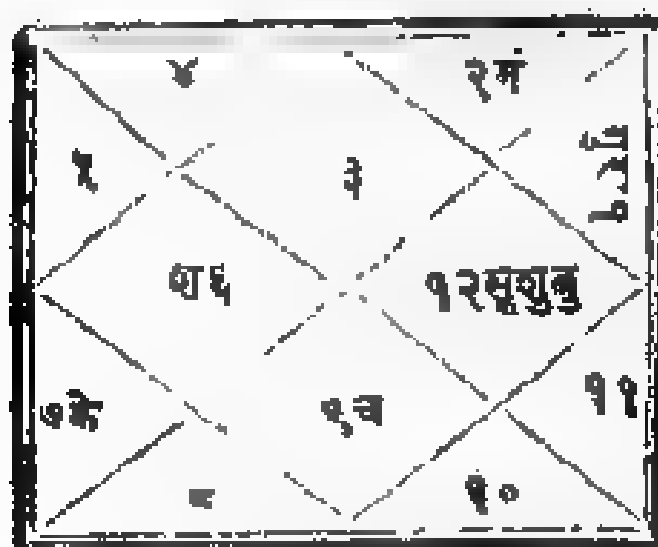 ४
२मं
५
३
श६
१२सूशुबु
७के
९च
११
८
१०